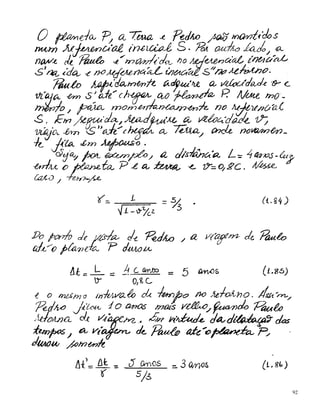 O planeta P, a Terra e Pedro, são mantidos
num referencial inercial S. Por outro lado, a
nave de Paulo é mantida no referencial inercial
S' na ida, e no referencial inercial S'' no retorno.
Paulo rapidamente adquire a velocidade v e
viaja em S' até chegar ao planeta P. Nesse mo-
mento, pára momentaneamente no referencial
S. Em seguida, readquire a velocidade v,
viaja em S'' até chegar à Terra, onde novamen-
te fica em repouso.
Seja, por exemplo, a distância L = 4 anos-luz
entre o planeta P e a terra e v = 0,8C. Nesse
caso, temos
γ = 1/√1-v²/c² = 5/3 . (1.84)
Do ponto de vista de Pedro, a viagem de Paulo
até o planeta P durou
Δt = L/v = 4 C anos/0,8 C = 5 anos (1.85)
e o mesmo intervalo de tempo no retorno. Assim,
Pedro ficou 10 anos mais velho, quando Paulo
retorna de viagem. Em virtude da dilatação dos
tempos, a viagem de Paulo até o planeta P,
durou somente
Δt' = Δt/γ = 5 anos/5/3 = 3 anos (1.86)
92